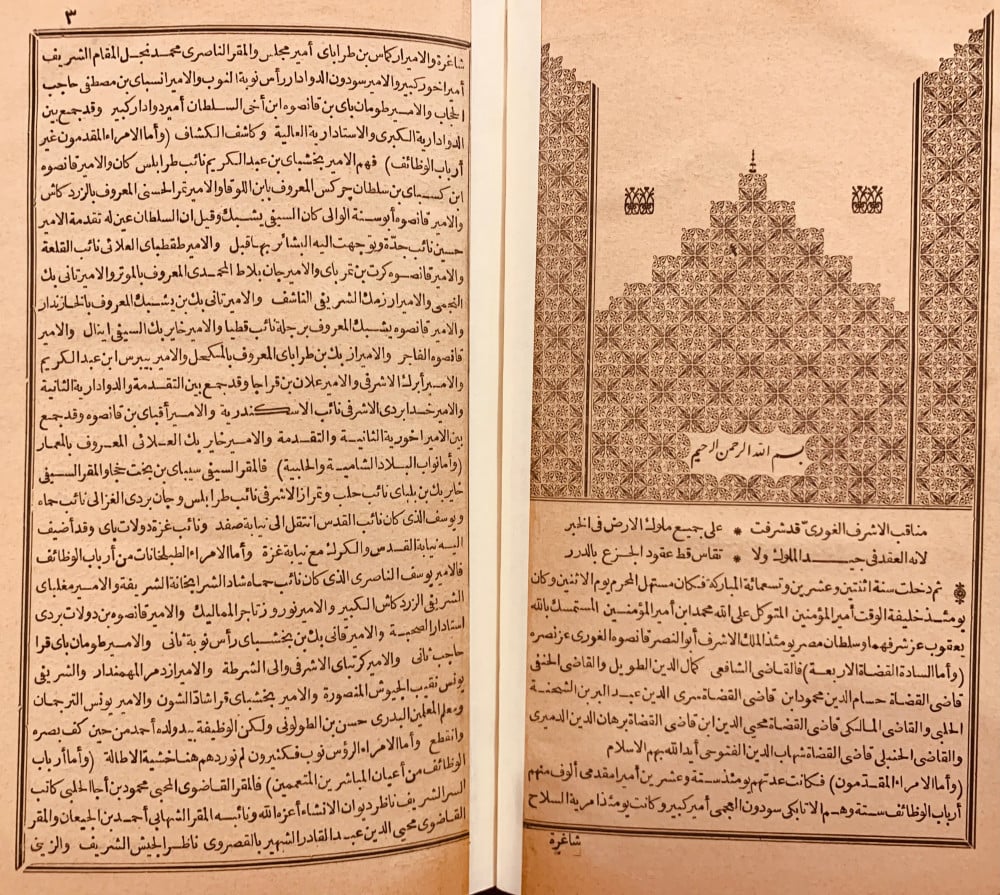 بسم الله الرحمن الرحيم
مناقب الاشرف الغورى قد شرفت * على جميع ملوك الارض فى الخبر
لانه العقد فى جيد الملوك ولا * تقاس قط عقود الجزع بالدرر
ثم دخلت سنة اثنتين وعشرين وتسعمائة المباركة فكان مستهل المحرم يوم الاثنين وكان
يومئذ خليفة الوقت أمير المؤمنين المتوكل على الله محمد ابن أمير المؤمنين المستمسك بالله
يعقوب عز شرفهما وسلطان مصر يومئذ الملك الاشرف أبو النصر قانصوه الغورى عز نصره
(وأما السادة القضاة الاربعة) فالقاضى الشافعى كمال الدين الطويل والقاضى الحنفى
قاضى القضاة حسام الدين محمود ابن قاضى القضاة سرى الدين عبد البر بن الشحنة
الحلبى والقاضى المالكى قاضى القضاة محيى الدين ابن قاضى القضاة برهان الدين الدميرى
والقاضى الحنبلى قاضى القضاة شهاب الدين الفتوحى أيد الله بهم الاسلام
(وأما الامراء المقدمون) فكانت عدتهم يومئذ ستة وعشرين أميرا مقدمى ألوف منهم
أرباب الوظائف ستة وهم الاتابكى سودون العجمى أمير كبير وكانت يومئذ امرية السلاح
شاغرة
٣
شاغرة والامير اركماس بن طراباى أمير مجلس والمقر الناصرى محمد نجل المقام الشريف
أمير اخور كبير والامير سودون الدوادارى رأس نوبة النوب والامير انسباى بن مصطفى حاجب
الحجاب والامير طومان باى بن قانصوه ابن أخى السلطان أمير دوادار كبير وقد جمع بين
الدوادارية الكبرى والاستادارية العالية وكاشف الكشاف (وأما الامراء المقدمون غير
أرباب الوظائف) فهم الامير بخشباى بن عبد الكريم نائب طرابلس كان والامير قانصوه
ابن سلطان جركس المعروف بابن اللوقا والامير تمر الحسنى المعروف بالزردكاش
والامير قانصوه أبو سنة الوالى كان السيفى يشبك وقيل ان السلطان عين له تقدمة الامير
حسين نائب جدة وتوجهت اليه البشائر بها قبل والامير طقطباى العلائى نائب القلعة
والامير قانصوه كرت بن تمرباى والامير جان بلاط المحمدى المعروف بالموتر والامير تانى بك
النجمى والامير ارزمك الشريفى الناشف والامير تانى بك بن يشبك المعروف بالخازندار
والامير قانصوه يشبك المعروف برجلة نائب قطيا والامير خاير بك السيفى اينال والامير
قانصوه الفاجر والامير ازبك بن طراباى المعروف بالمكحل والامير بيبرس ابن عبد الكريم
والامير أبرك الاشرفى والامير علان بن قراجا وقد جمع بين التقدمة والدوادارية الثانية
والامير خدابردى الاشرفى نائب الاسكندرية والامير أقباى بن قانصوه وقد جمع
بين الامير اخورية الثانية والتقدمة والامير خاير بك العلائى المعروف بالمعمار
(وأما نواب البلاد الشامية والحلبية) فالمقر السيفى سيباى بن بخت خجا والمقر السيفى
خاير بك بن بلباى نائب حلب وتمراز الاشرفى نائب طرابلس وجان بردى الغزالى نائب حماه
ويوسف الذى كان نائب القدس انتقل الى نيابة صفد ونائب غزة دولات باى وقد أضيف
اليه نيابة القدس والكرك مع نيابة غزة وأما الامراء الطبلخانات من أرباب الوظائف
فالامير يوسف الناصرى الذى كان نائب حماه شاد الشرابخانة الشريفة والامير مغلباى
الشريفى الزردكاش الكبير والامير نوروز تاجر المماليك والامير قانصوه من دولات بردى
استادار الصحبة والامير قانى بك بن بخشباى رأس نوبة ثانى والامير طومان باى قرا
حاجب ثانى والامير كرتباى الاشرفى والى الشرطة والامير ازدمر المهمندار والشريفى
يونس نقيب الجيوش المنصورة والامير بخشباى قراشاد الشون والامير يونس الترجمان
ومعلم المعلمين البدرى حسن بن الطولونى ولكن الوظيفة بيد ولده أحمد من حين كف بصره
وانقطع وأما الامراء الرؤس نوب فكثيرون لم نوردهم هنا خشية الاطالة (وأما أرباب
الوظائف من أعيان المباشرين المتعممين) فالمقر القاضوى المحبى محمود بن أجا الحلبى كاتب
السر الشريف ناظر ديوان الانشاء أعزه الله ونائبه المقر الشهابى أحمد بن الجيعان والمقر
القاضوى محيى الدين عبد القادر الشهير بالقصروى ناظر الجيش الشريف والزينى